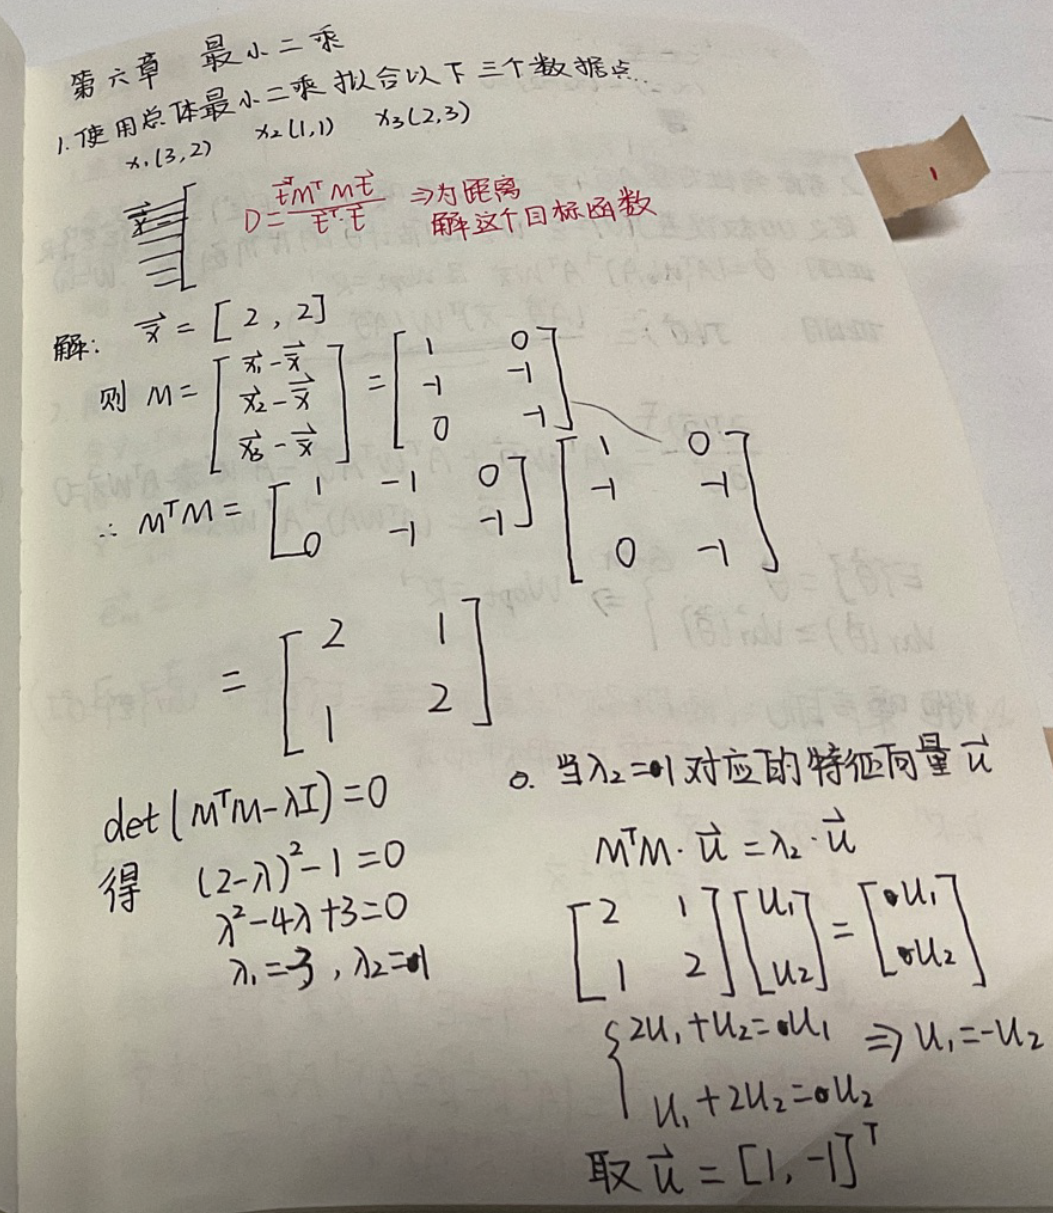 第六章 最小二乘
1. 使用总体最小二乘拟合以下三个数据点...
x₁(3,2) x₂(1,1) x₃(2,3)
D = \frac{\vec{t}^T M^T M \vec{t}}{\vec{t}^T · \vec{t}} ⇒为距离
解这个目标函数
解: \vec{x} = [2, 2]
则 M = \begin{bmatrix} \vec{x_1} - \vec{\bar{x}} \\ \vec{x_2} - \vec{\bar{x}} \\ \vec{x_3} - \vec{\bar{x}} \end{bmatrix} = \begin{bmatrix} 1 & 0 \\ -1 & -1 \\ 0 & -1 \end{bmatrix}
∴ MᵀM = \begin{bmatrix} 1 & -1 & 0 \\ 0 & -1 & -1 \end{bmatrix} \begin{bmatrix} 1 & 0 \\ -1 & -1 \\ 0 & -1 \end{bmatrix}
= \begin{bmatrix} 2 & 1 \\ 1 & 2 \end{bmatrix}
det(MᵀM-λI)=0
得 (2-λ)²-1=0
λ²-4λ+3=0
λ₁=3, λ₂=1
0. 当λ₂=1对应的特征向量\vec{u}
MᵀM·\vec{u}=λ₂·\vec{u}
\begin{bmatrix} 2 & 1 \\ 1 & 2 \end{bmatrix} \begin{bmatrix} u₁ \\ u₂ \end{bmatrix} = \begin{bmatrix} u₁ \\ u₂ \end{bmatrix}
{ 2u₁+u₂=u₁ ⇒ u₁=-u₂
u₁+2u₂=u₂
取 \vec{u} = [1, -1]ᵀ